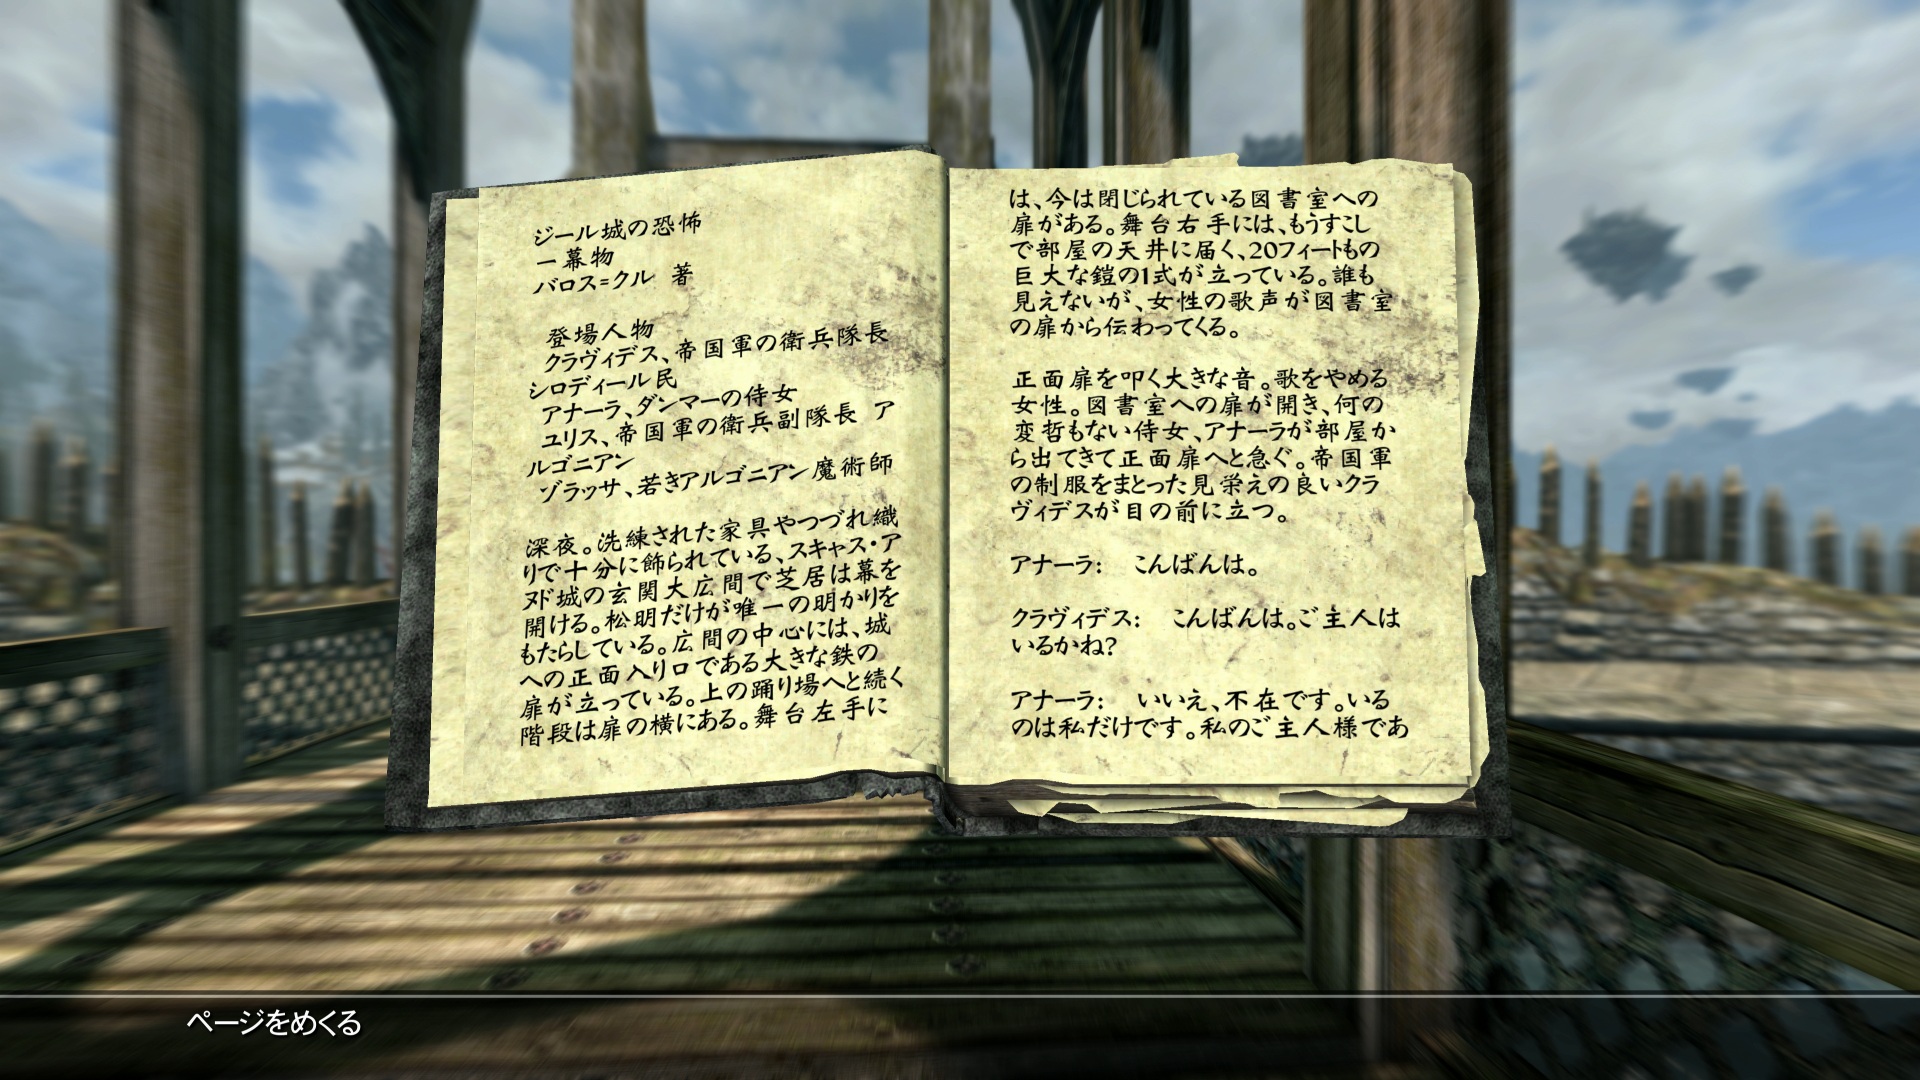 ジール城の恐怖
一幕物
バロス=クル 著
登場人物
クラヴィデス、帝国軍の衛兵隊長
シロディール民
アナーラ、ダンマーの侍女
ユリス、帝国軍の衛兵副隊長 ア
ルゴニアン
ゾラッサ、若きアルゴニアン魔術師
深夜。洗練された家具やつづれ織
りで十分に飾られている、スキャス・ア
ヌド城の玄関大広間で芝居は幕を
開ける。松明だけが唯一の明かりを
もたらしている。広間の中心には、城
への正面入り口である大きな鉄の
扉が立っている。上の踊り場へと続く
階段は扉の横にある。舞台左手に
は、今は閉じられている図書室への
扉がある。舞台右手には、もうすこし
で部屋の天井に届く、20フィートもの
巨大な鎧の1式が立っている。誰も
見えないが、女性の歌声が図書室
の扉から伝わってくる。
正面扉を叩く大きな音。歌をやめる
女性。図書室への扉が開き、何の
変哲もない侍女、アナーラが部屋か
ら出てきて正面扉へと急ぐ。帝国軍
の制服をまとった見栄えの良いクラ
ヴィデスが目の前に立つ。
アナーラ: こんばんは。
クラヴィデス: こんばんは。ご主人は
いるかね?
アナーラ: いいえ、不在です。いる
のは私だけです。私のご主人様であ
ページをめくる